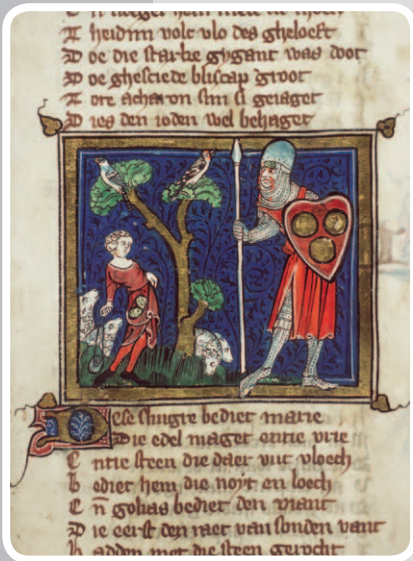 heidin volc vlo des gheloeft
D oe die starke gygant was doot
D oe ghesciede bliscap groot
T ote acharon sijn si geiaget
D ies den ioden wel behaget
Dese slingre bediet marie
Die edel maget entie vrie
E ntie steen die daer vut vloech
B ediet hem die noyt en loech
E ñ golias bediet den viant
D ie eerst den raet van sonden vant
H adden met die steen gerocht